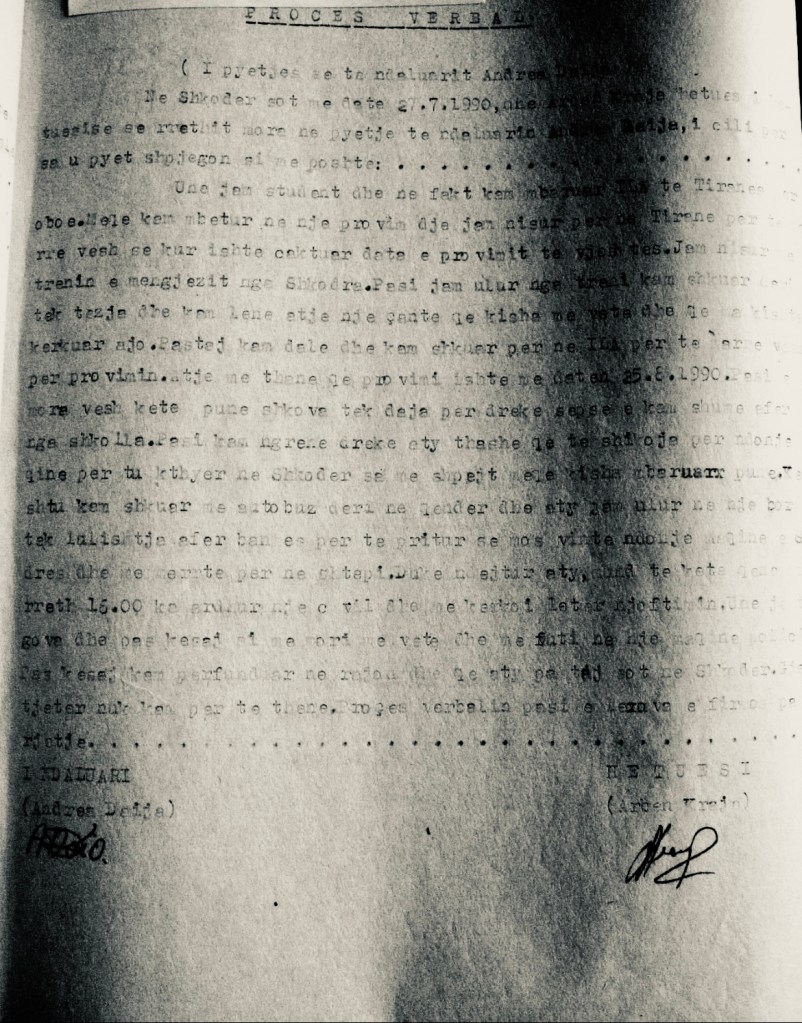 PROCES VERBAL
( I pyetjes se te ndaluarit Andrea
Ne Shkoder sot me date 27.7.1990, une
tuesise se rrethit mora ne pyetje te ndaluarin Andrea Daija, i cili
sa u pyet shpjegon si me poshte: . . . . . . . . . . . . . . .
Une jam student dhe ne fakt kam mbaruar ILA te Tiranes
oboe. Mele kam mbetur ne nje provim dje jam nisur per ne Tirane per
rre vesh se kur ishte caktuar data e provimit te vjeshtes. Jam nisur
trenin e mengjezit nga Shkodra. Pasi jam ulur nga treni kam shkuar
tek tezja dhe kam lene atje nje çante qe kisha me vete dhe qe
kerkuar ajo. Pastaj kam dale dhe kam shkuar per ne ILA per te
per provimin. Atje me thane qe provimi ishte me daten 25.8.1990.
mora vesh kete pune shkova tek daja per dreke sepse e kam shume afer
nga shkolla. Pasi kam ngrene dreke aty thashe qe te shikoja per ndonje
qine per tu kthyer ne Shkoder sa me shpejt mele kisha mbaruar
shtu kam shkuar me autobuz deri ne qender dhe aty jam ulur ne nje
tek lulishtja afer per te pritur se mos vinte ndonje
dres dhe me merrte per ne shtepi. Duke ndejtur aty, mund te kete qene
rreth 16.00 ka ardhur nje civil dhe me kerkoi leter njoftimin. Une
gova dhe pas kesaj ai me mori me vete dhe me futi ne nje
Pas kesaj kam perfunduar ne rajon dhe qe aty pa taj sot ne Shkoder.
tjeter nuk kam per te thene. Proçes verbalin pasi e lexova e firmos
rjetje. . . . . . . . . . . . . . . . . . . . . . . .
I NDALUARI HETUESI
(Andrea Daija) (Arben Kraja)